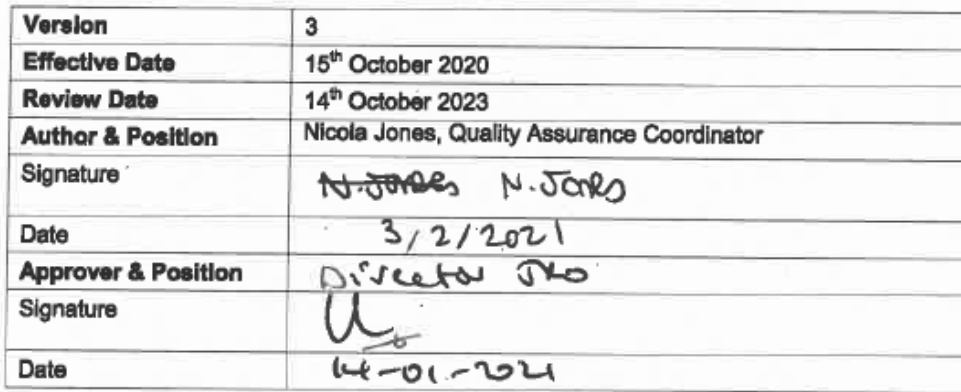 Version 3
Effective Date 15th October 2020
Review Date 14th October 2023
Author & Position Nicola Jones, Quality Assurance Coordinator
Signature N. Jones N. Jones
Date 3/2/2021
Approver & Position Director
Signature
Date 14-01-2021